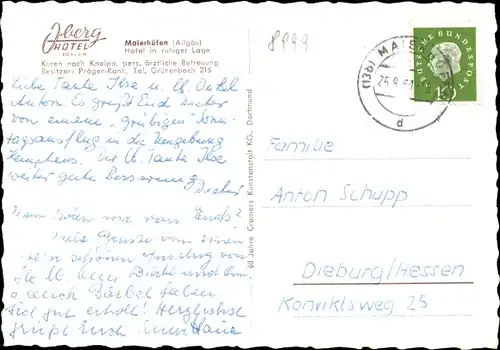 Iberg
HOTEL
Maierhöfen (Allgäu)
Hotel in ruhiger Lage
Kuren nach Kneipp, pers. ärztliche Betreuung
Besitzer: Präger-Rank, Tel. Grünenbach 215
8999
(13b) MAIERHÖFEN
d
DEUTSCHE BUNDESPOST
10
Liebe Tante Ilse u. lb. Onkel
Anton. Es grüßt Euch Dieter
von einem "grabigen" Sonn-
tagsausflug in die Umgebung
Kemptens. Der lb. Tante Ilse
weiter gute Besserung
Dieter
wir von Euch?
Liebe Grüsse von einem
schönen Ausflug von
Bärbel haben
sich gut erholt! Herzlichst
grüßt Euch
60 Jahre Cramers Kunstanstalt KG., Dortmund
Familie
Anton Schupp
Dieburg/Hessen
Konviktsweg 25